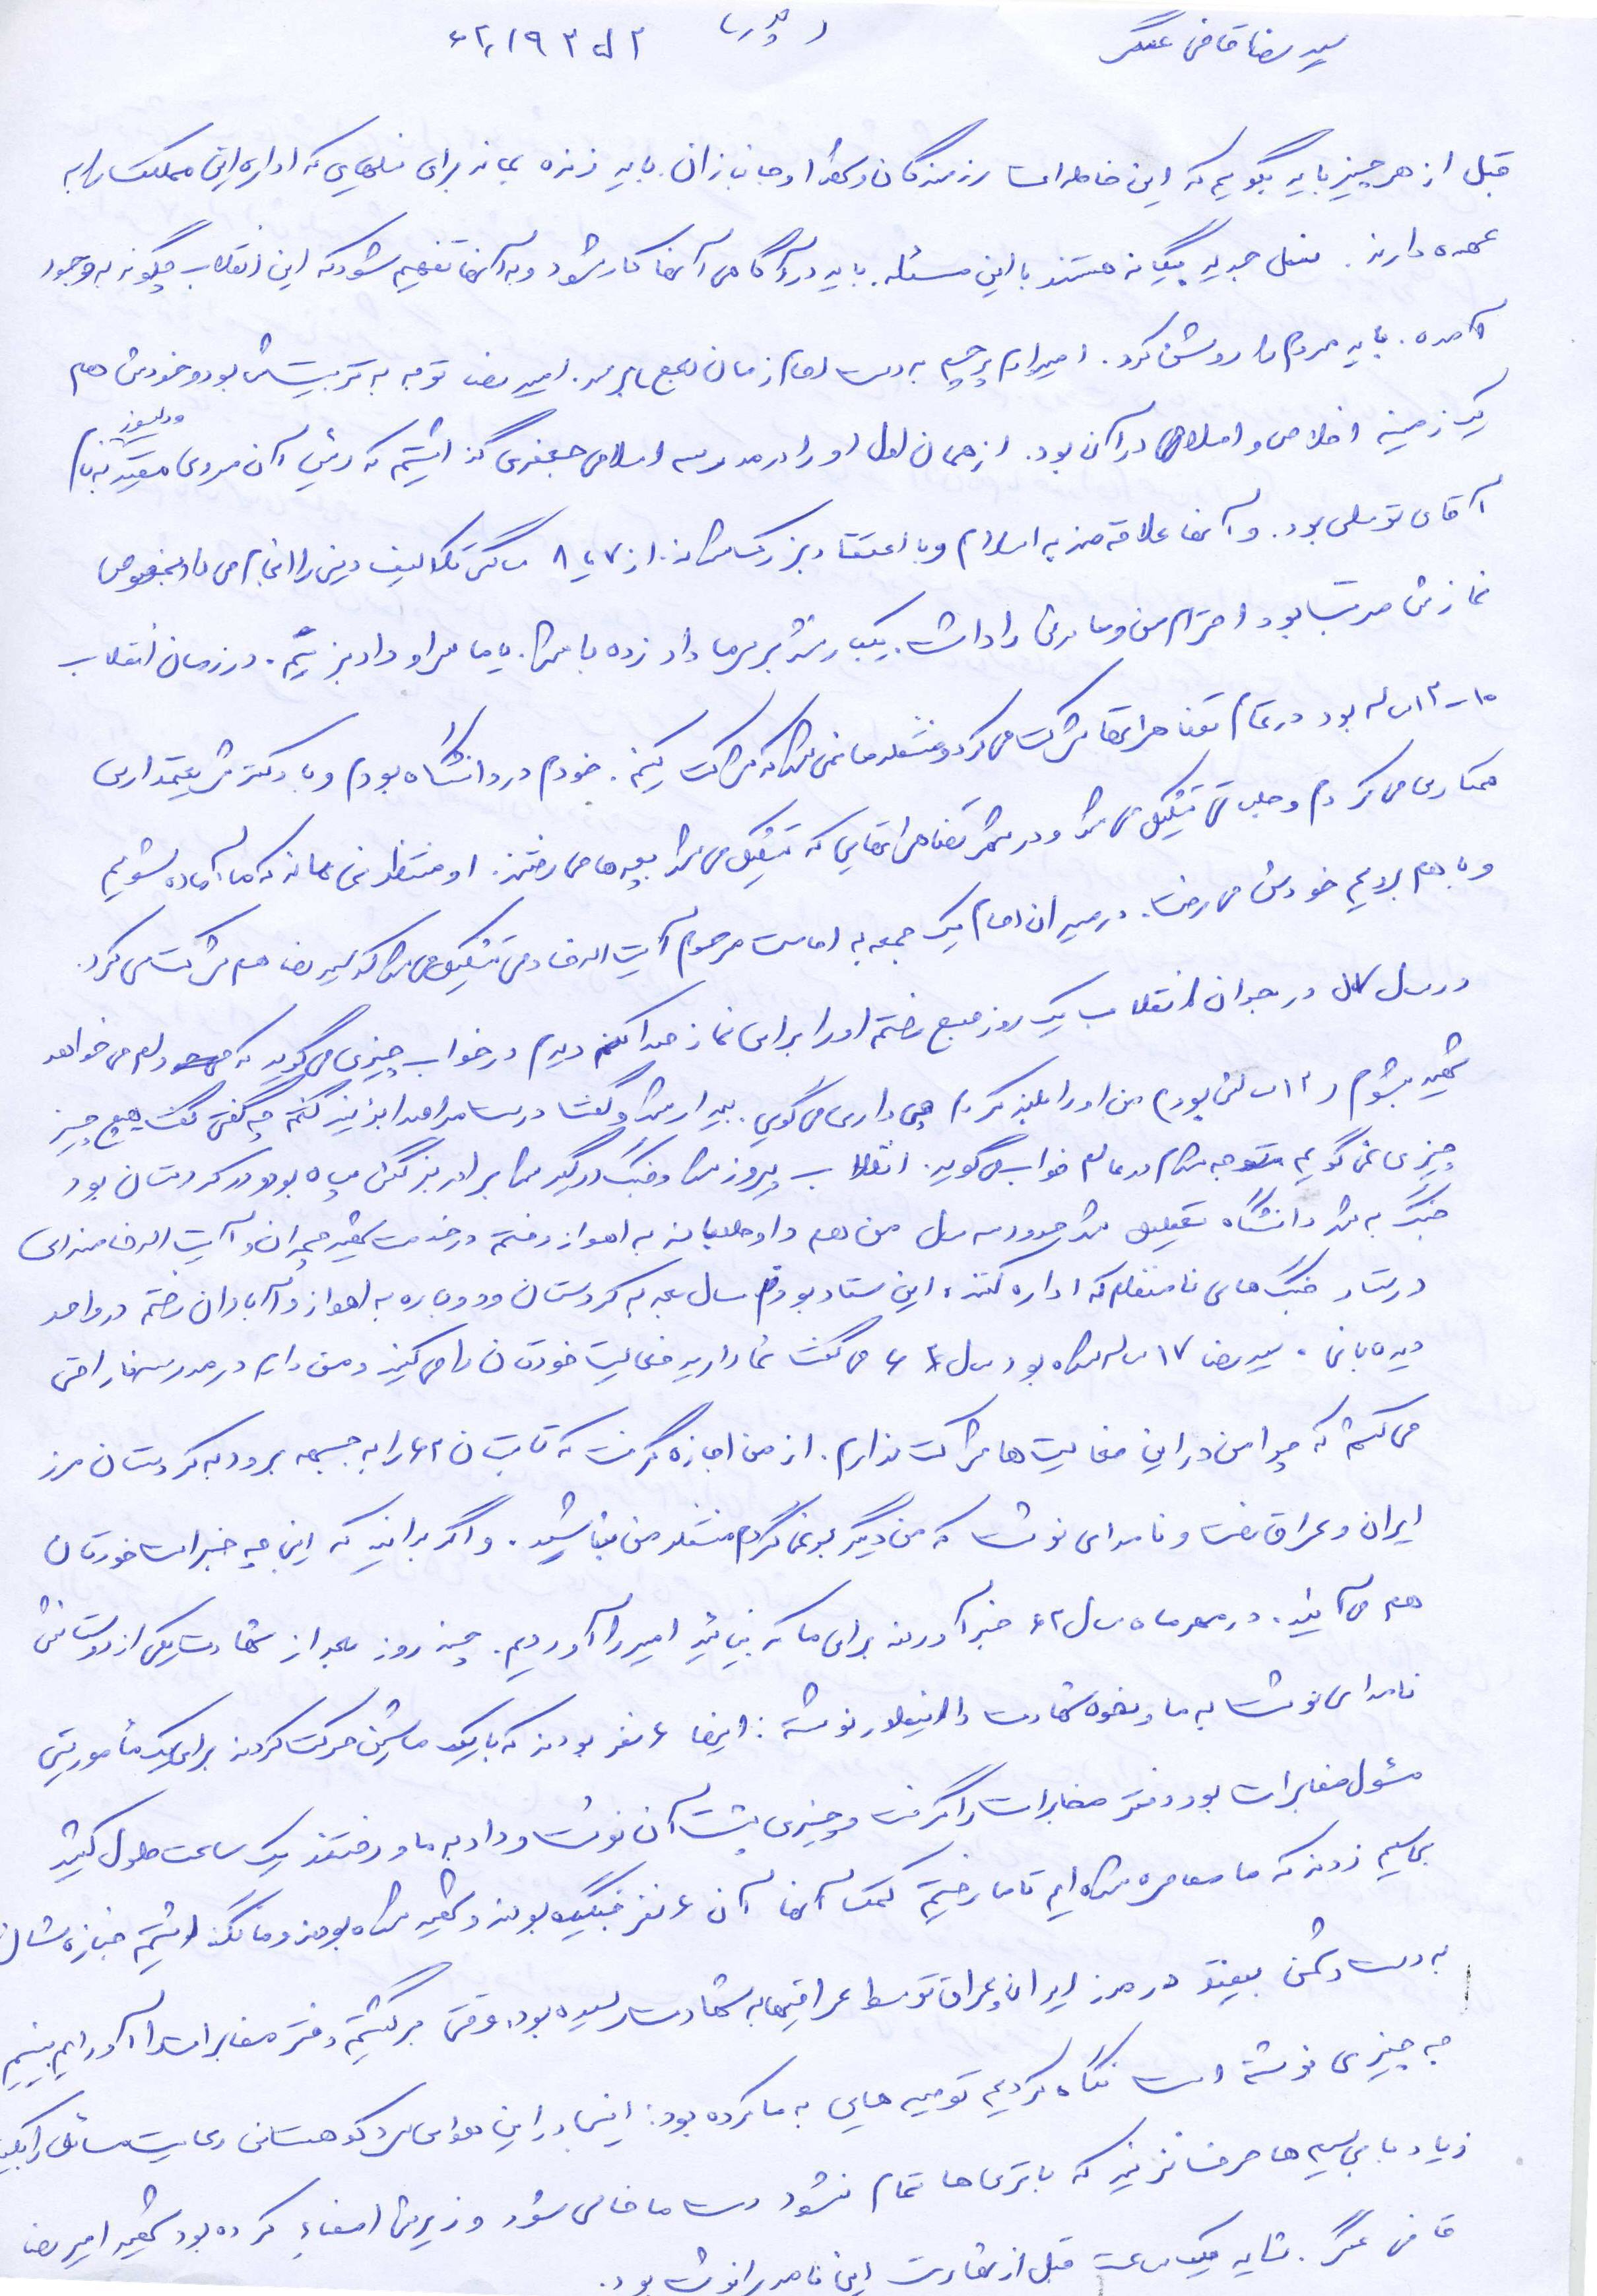 سید رضا قاضی عسگر
قبل از هر چیز باید بگویم که این خاطرات رزمندگان و شهدا و جانبازان باید زنده بماند برای نسلهای که اداره این مملکت را به
عهده دارند. نسل جدید بیگانه هستند با این مسئله. باید در آگاهی آنها کار شود و به آنها تفهیم شود که این انقلاب چگونه به وجود
آمده. باید مردم را روشن کرد. امیدوارم پرچم به دست امام زمان (عج) برسد. امیر رضا توجه به تربیتش بود و خودش هم
یک زمینه اخلاص و اسلامی در آن بود. از همان اول او را در مدرسه اسلامی جعفری گذاشتیم که رئیس آن مردی متعهد و دلسوز به نام
آقای توسلی بود. و آنها علاقه مند به اسلام و با اعتقاد بزرگ شدند. از ۷ یا ۸ سالگی تکالیف دینی را انجام می داد بخصوص
نمازش مرتب بود احترام من و مادرش را داشت. یکبار نشد بر سر ما داد زده باشد. یا ما سر او داد بزنیم. در زمان انقلاب
۱۰-۱۲ ساله بود در تمام تظاهراتها شرکت می کرد و منتظر ما نمی شد که شرکت کنیم. خودم در دانشگاه بودم و با دکتر شریعتمداری
همکاری می کردم و جلساتی تشکیل می شد و در شهر تظاهراتهایی که تشکیل می شد بچه ها می رفتند. او منتظر نمی ماند که ما آماده شویم
و با هم برویم خودش می رفت. در میدان امام یک جمعه به امامت مرحوم آیت الله خادمی تشکیل می شد که امیر رضا هم شرکت می کرد.
در سال در جریان انقلاب یک روز صبح رفتم او را برای نماز صدا کنم دیدم در خواب چیزی می گوید که دلم می خواهد
شهید بشوم و ۱۲ سالش بود من او را بلند کردم چی داری می گویی. بیدار شد و گفت درست مرا صدا بزنید گفتم چه گفتی گفت هیچ چیز
چیزی نمی گویم متوجه شدم در عالم خواب می گوید. انقلاب پیروز شد و جنگ درگیر شد برادر بزرگش سپاه بود و در کردستان بود
جنگ که شد دانشگاه تعطیل شد حدود سه سال من هم داوطلبانه به اهواز رفتم در خدمت شهید چمران و آیت الله خامنه ای
در ستاد جنگ های نامنظم که اداره کننده این ستاد بودم سال بعد به کردستان و دوباره به اهواز و آبادان رفتم در واحد
دیده بانی. سید رضا ۱۷ ساله شده بود سال ۶۱ می گفت شما دارید فعالیت خودتان را می کنید و من دارم در مدرسه ناراحتی
می کشم که چرا من در این فعالیت ها شرکت ندارم. از من اجازه گرفت که تابستان ۶۲ را به جبهه برود به کردستان مرز
ایران و عراق رفت و نامه ای نوشت که من دیگر برنمی گردم منتظر من نباشید. و اگر بدانید که اینجا چه خبر است خودتان
هم می آیید. در مهر ماه سال ۶۲ خبر آوردند برای ما که بیائید امیر را آوردیم. چند روز بعد از شهادت یکی از دوستانش
نامه ای نوشت به ما و نحوه شهادت را اینطور نوشته: اینها ۶ نفر بودند که با یک ماشین حرکت کردند برای یک مأموریتی
مسئول مخابرات بود دفتر مخابرات را گرفت و چیزی پشت آن نوشت و داد به ما و رفتند یک ساعت طول کشید
بی سیم زدند که ما محاصره شده ایم تا ما رفتیم کمک آنها آن ۶ نفر جنگیده بودند و شهید شده بودند و ما نگذاشتیم جنازه شان
به دست دشمن بیفتد در مرز ایران و عراق توسط عراقیها به شهادت رسیده بود. وقتی برگشتیم دفتر مخابرات را آوردیم ببینیم
چه چیزی نوشته است نگاه کردیم توصیه هایی به ما کرده بود: اینجا در این هوای سرد کوهستانی رعایت مسائل را بکنید
زیاد با بی سیم ها حرف نزنید که باتری ها تمام نشود دست ما خالی می شود و زیرش امضاء کرده بود شهید امیر رضا
قاضی عسگر. شاید یک ساعت قبل از شهادت این نامه را نوشته بود.